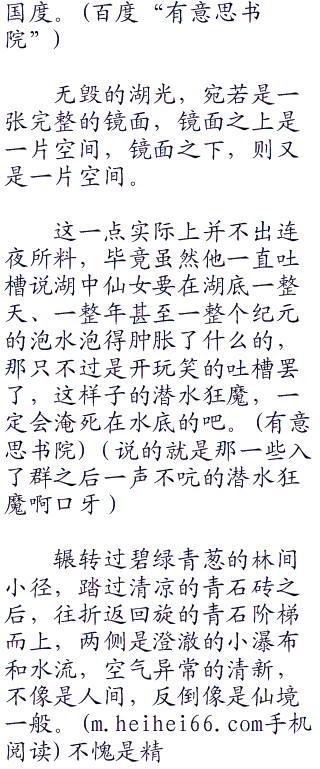 国度。(百度“有意思书
院”)
无毁的湖光，宛若是一
张完整的镜面，镜面之上是
一片空间，镜面之下，则又
是一片空间。
这一点实际上并不出连
夜所料，毕竟虽然他一直吐
槽说湖中仙女要在湖底一整
天、一整年甚至一整个纪元
的泡水泡得肿胀了什么的，
那只不过是开玩笑的吐槽罢
了，这样子的潜水狂魔，一
定会淹死在水底的吧。(有意
思书院)（说的就是那一些入
了群之后一声不吭的潜水狂
魔啊口牙）
辗转过碧绿青葱的林间
小径，踏过清凉的青石砖之
后，往折返回旋的青石阶梯
而上，两侧是澄澈的小瀑布
和水流，空气异常的清新，
不像是人间，反倒像是仙境
一般。(m.heihei66.com手机
阅读)不愧是精